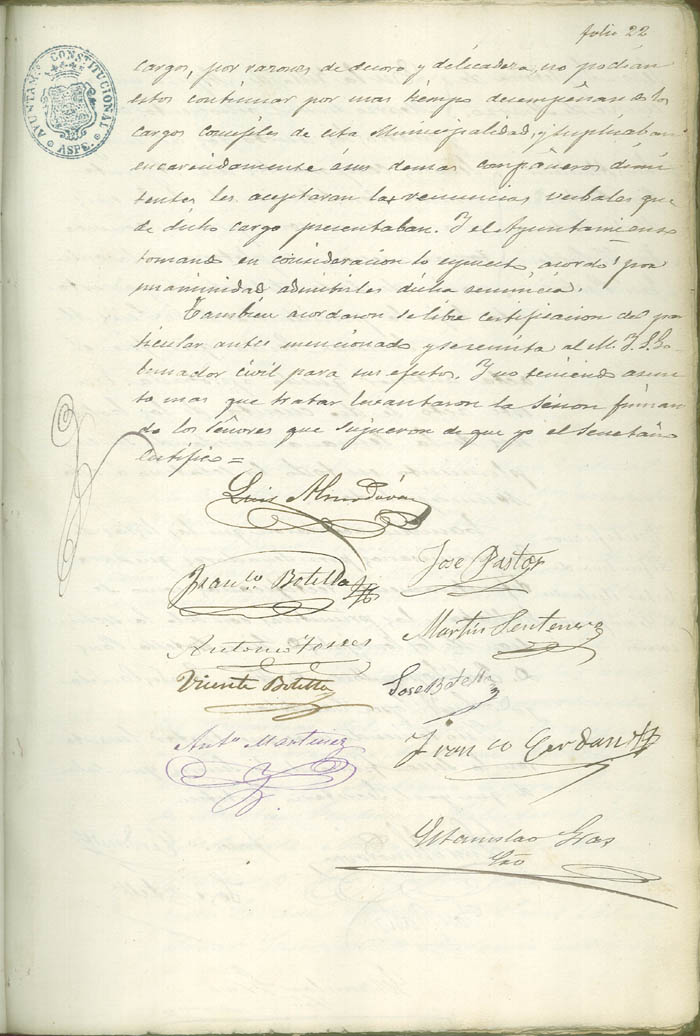 folio 22
AYUNTAM.º CONSTITUCIONAL
ASPE.
cargos, por razones de decoro y delicadeza, no podian
estos continuar por mas tiempo desempeñando los
cargos concejiles de esta Municipalidad, y suplicaban
encarecidamente á sus demas compañeros dimi
tentes les aceptaran las renuncias verbales que
de dicho cargo presentaban. Y el Ayuntamiento
tomando en consideracion lo expuesto, acordó por
unanimidad admitirles dicha renuncia.
Tambien acordaron se libre certificacion del par
ticular antes mencionado y se remita al M. I. S. Go-
bernador civil para sus efectos. Y no teniendo asun
to mas que tratar levantaron la sesion firman
do los Señores que supieron de que yo el Secretario
Certifico =
Luis Almodóvar
Franco. Botella
José Pastor
Antonio Torres
Martin Sentenero
Vicente Botella
Jose Botella
Anto Martinez
Franco Cerdan
Estanislao Gras
Srio